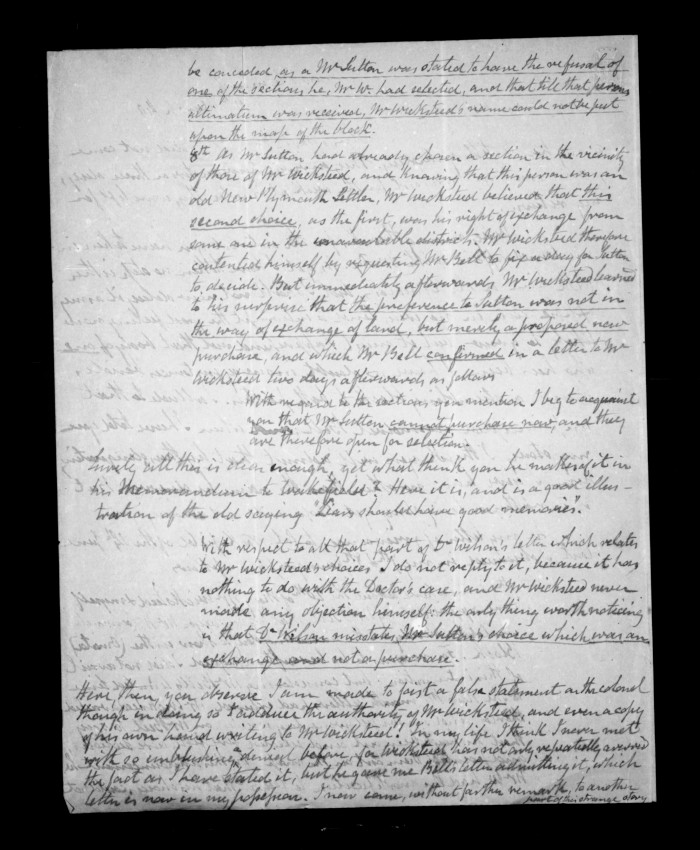 be conceded, as a Mr Sutton was stated to have the refusal of
one of the sections he, Mr W. had selected, and that till that persons
ultimatum was received, Mr Wicksteed's name could not be put
upon the map of the block.
8th As Mr Sutton had already chosen a section in the vicinity
of those of Mr Wicksteed, and knowing that this person was an
old New Plymouth Settler, Mr Wicksteed believed that this
second choice, as the first, was his right of exchange from
some one in the unavailable districts. Mr Wicksteed therefore
contented himself by requesting Mr Bell to fix a day for Sutton
to decide. But immediately afterwards Mr Wicksteed learned
to his surprise that the preference to Sutton was not in
the way of exchange of land, but merely a proposed new
purchase, and which Mr Bell confirmed in a letter to Mr
Wicksteed two days afterwards as follows
With regard to the sections you mention I beg to acquaint
you that Mr Sutton cannot purchase now, and they
are therefore open for selection.
Surely all this is clear enough, yet what think you he makes of it in
his Memorandum to Wakefield? Here it is, and is a good illus-
tration of the old saying "Liars should have good memories".
With respect to all that part of Dr Wilson's letter which relates
to Mr Wicksteed's choices I do not reply to it, because it has
nothing to do with the Doctor's case, and Mr Wicksteed never
made any objection himself: the only thing worth noticing
is that Dr Wilson misstates Mr Sutton's choice which was an
exchange and not a purchase.
Here then you observe I am made to put a false statement on the colonel
though in doing so I adduce the authority of Mr Wicksteed, and even a copy
of his own hand writing to Mr Wicksteed! In my life I think I never met
with so unblushing a denial before, for Wicksteed has not only repeatedly avowed
the fact as I have stated it, but he gave me Bell's letter admitting it, which
letter is now in my possession. I now come, without farther remark, to another
part of this strange story